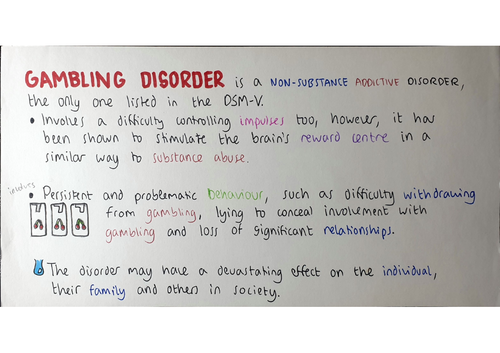 GAMBLING DISORDER is a NON-SUBSTANCE ADDICTIVE DISORDER,
the only one listed in the DSM-V.
• Involves a difficulty controlling impulses too, however, it has
been shown to stimulate the brain's reward centre in a
similar way to substance abuse.
involves
• Persistent and problematic behaviour, such as difficulty withdrawing
from gambling, lying to conceal involvement with
gambling and loss of significant relationships.
The disorder may have a devastating effect on the individual,
their family and others in society.